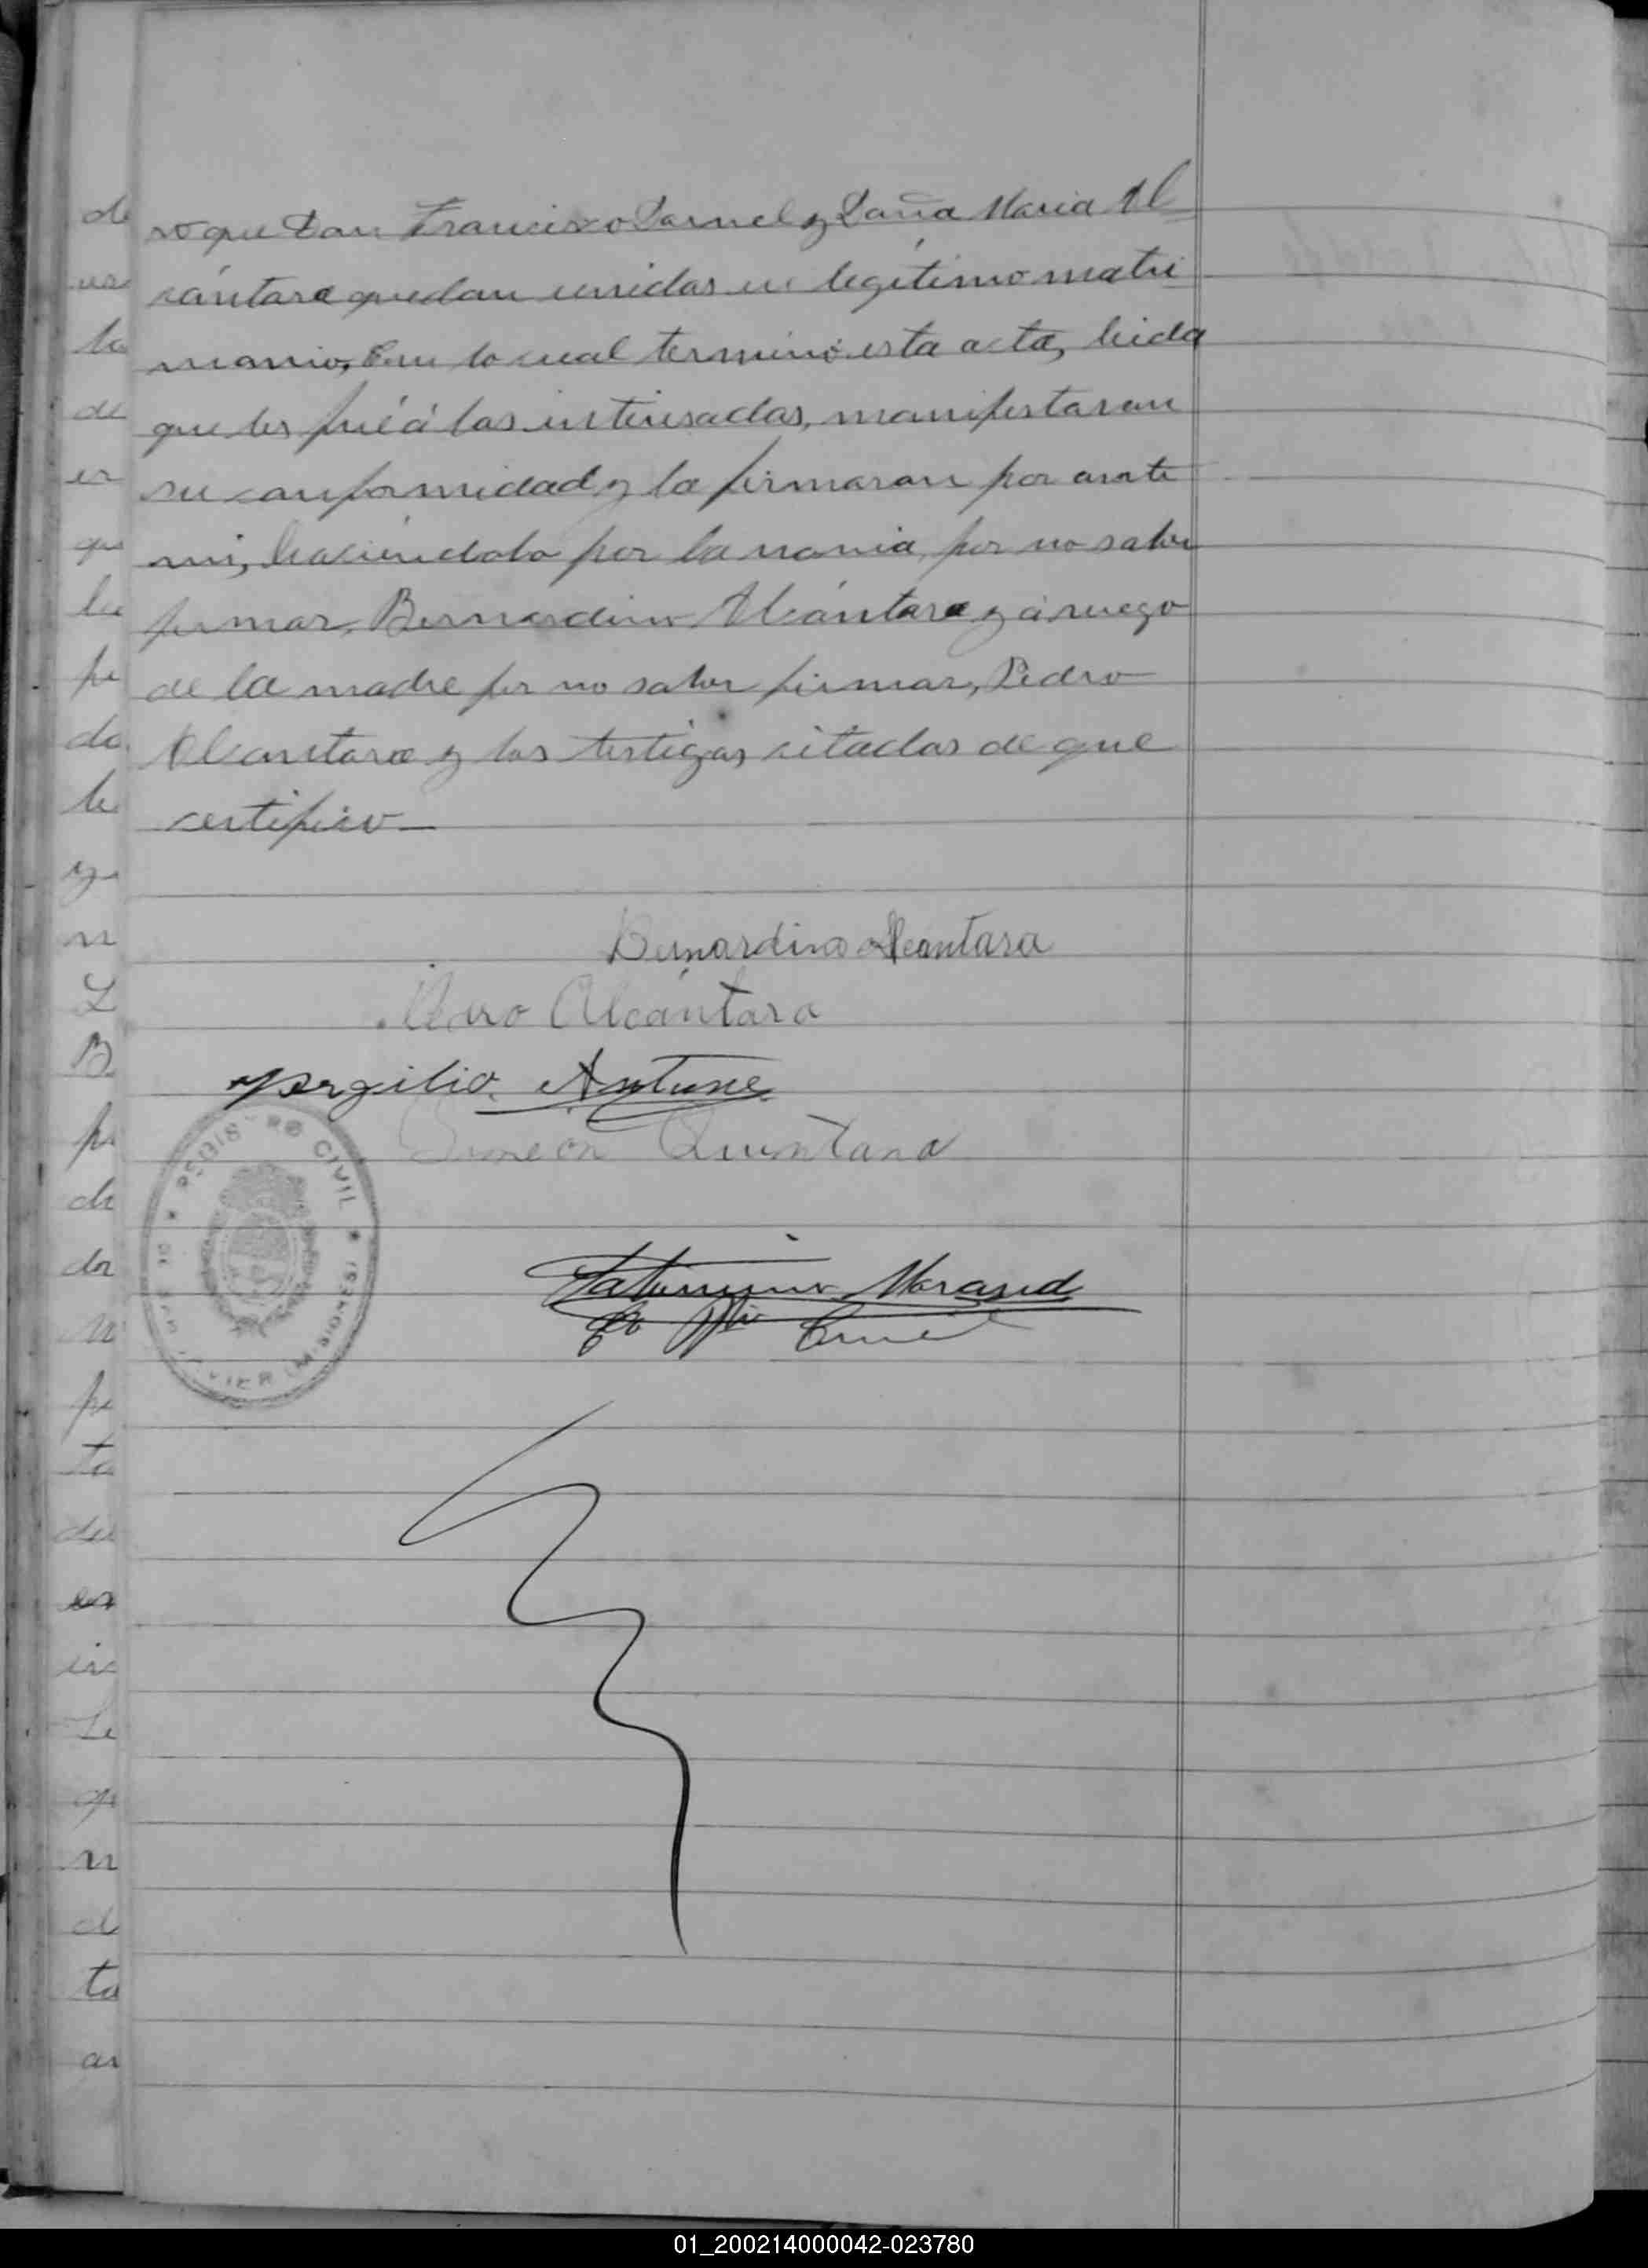 ro que Don Francisco Dornel y Doña Maria Al
cántara quedan unidos en legítimo matri
monio, Con lo cual terminó esta acta, leida
que les fué á los interesados, manifestaron
su conformidad y la firmaron por ante
mi, haciéndolo por la novia, por no saber
firmar, Bernardino Alcántara y á ruego
de la madre por no saber firmar, Pedro
Alcantara y los testigos citados de que
certifico
Bernardino Alcantara
Pedro Alcántara
Virgilio Antune
Simeon Quintana
Saturnino
REGISTRO CIVIL
DE SAN JAVIER (MISIONES)
01_200214000042-023780